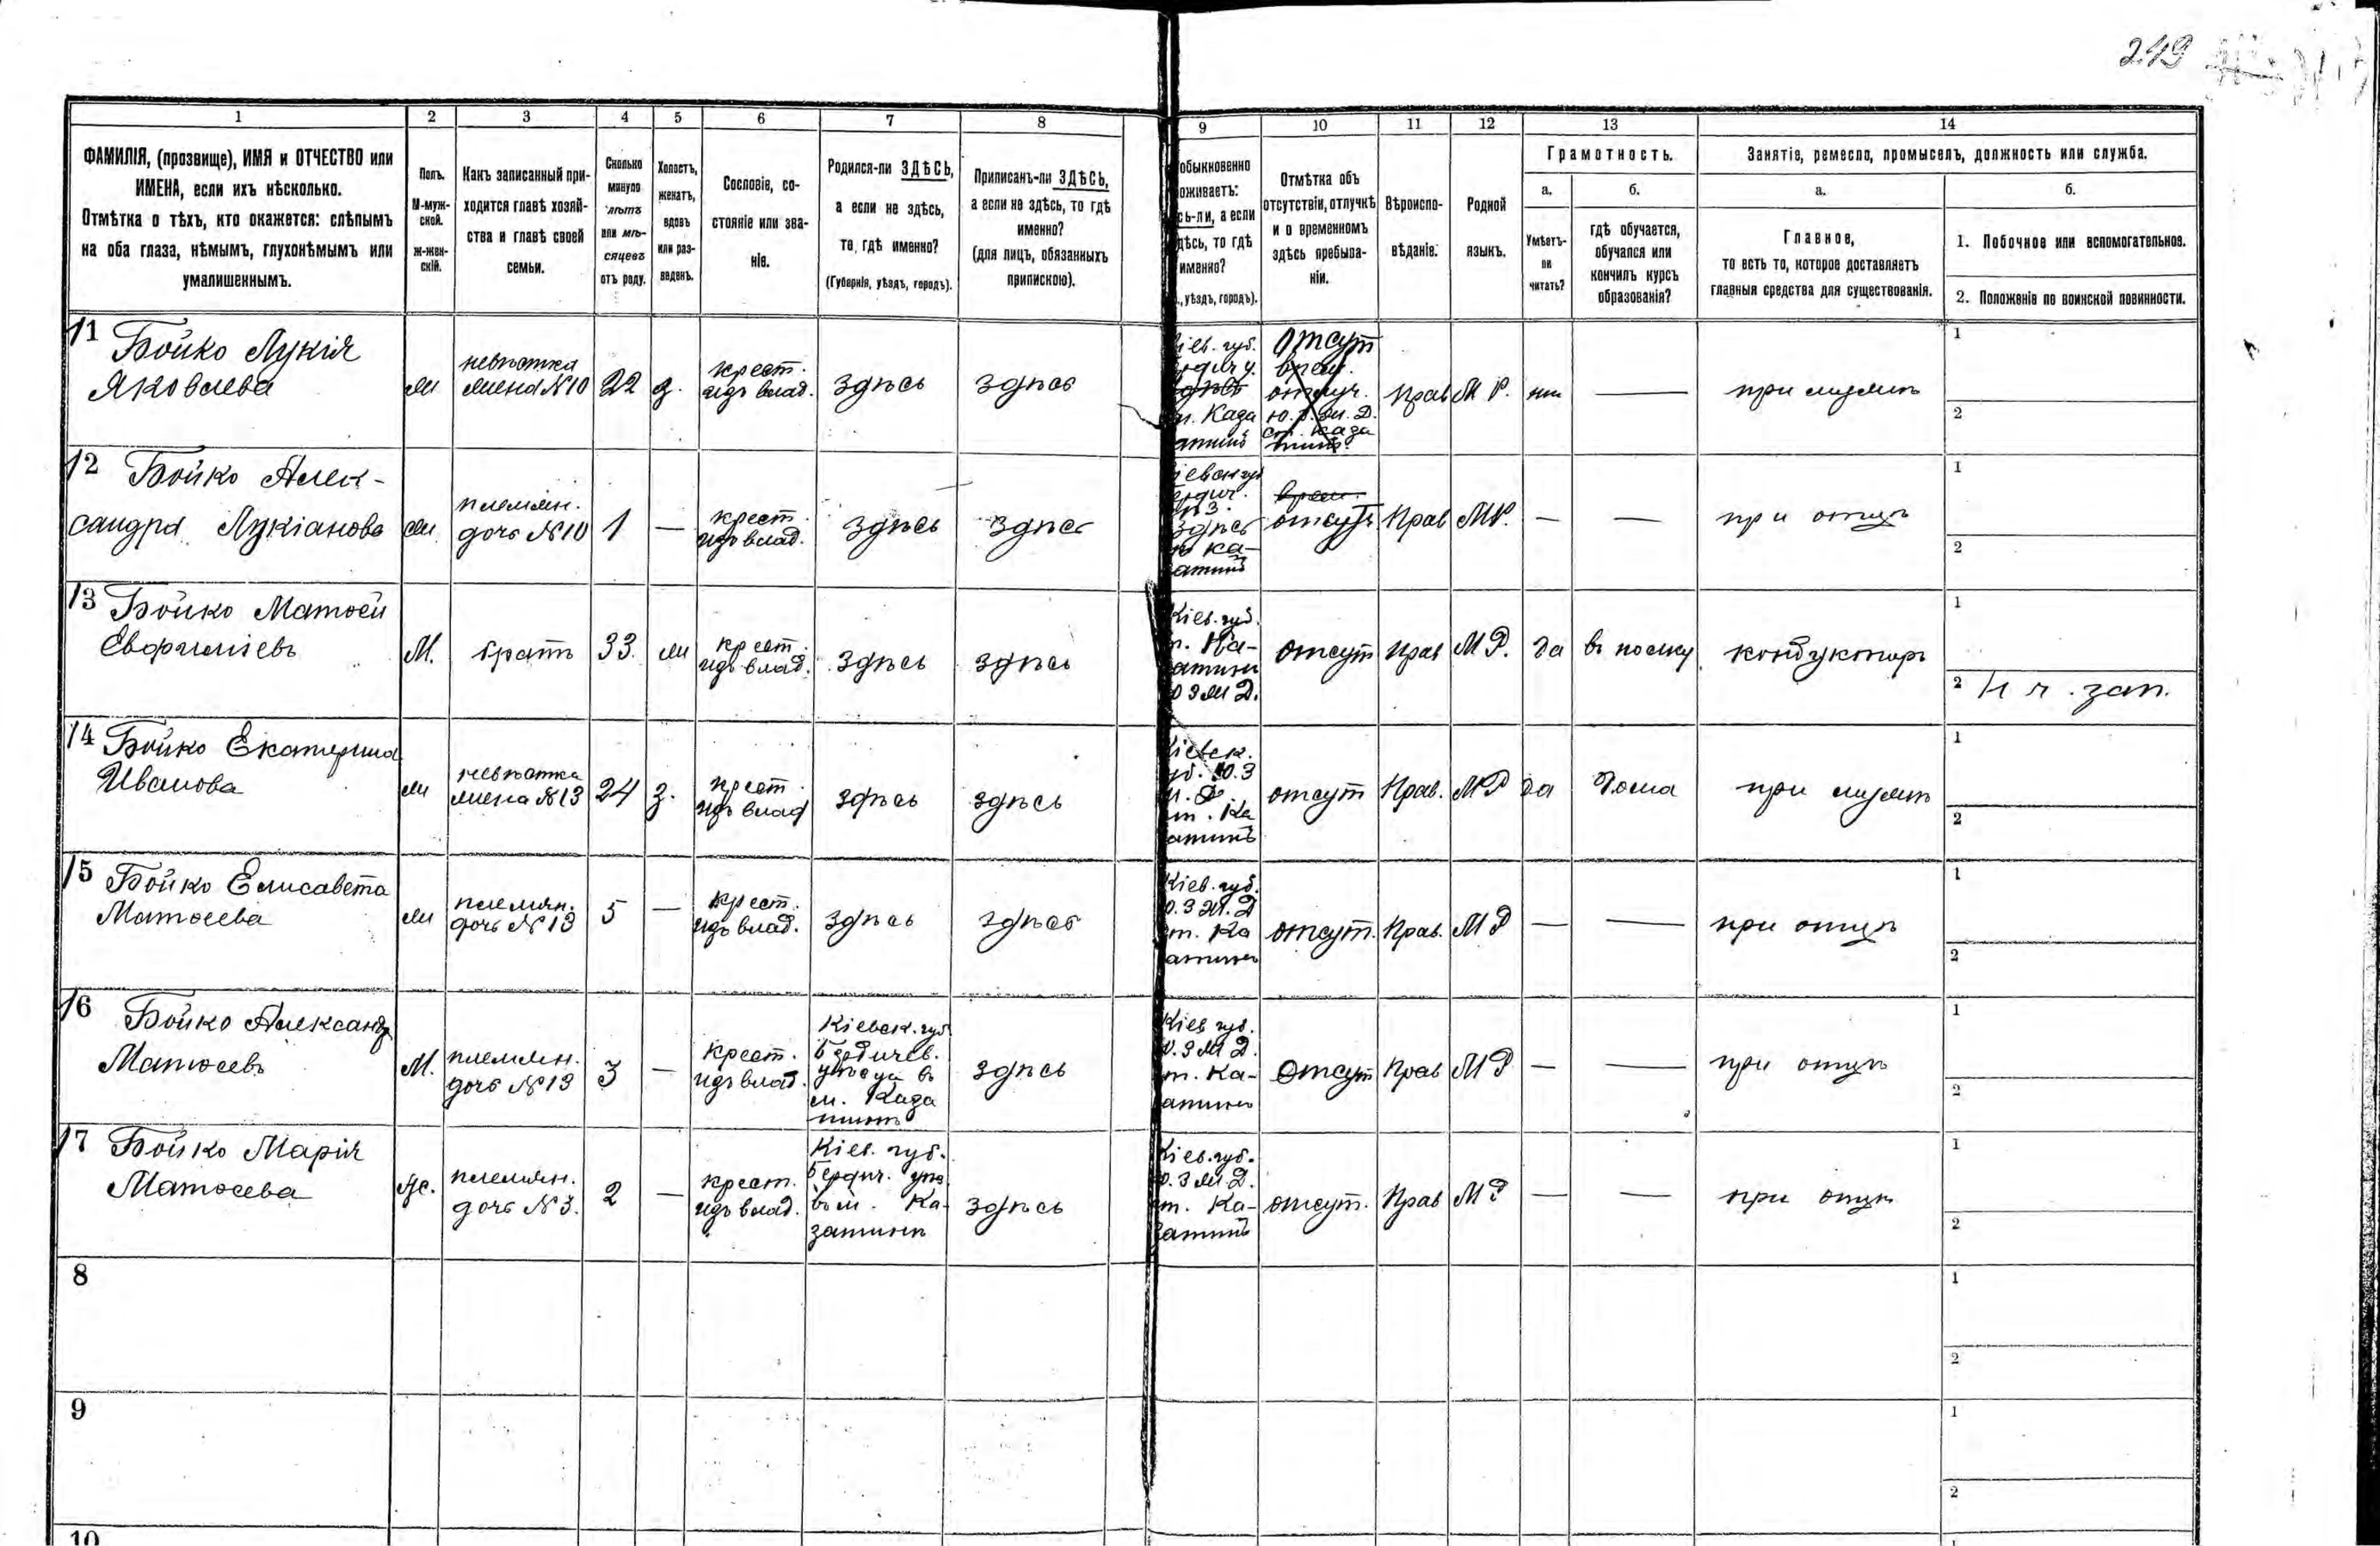 249
1 2 3 4 5 6 7 8 9 10 11 12 13 14
ФАМИЛІЯ, (прозвище), ИМЯ и ОТЧЕСТВО или
ИМЕНА, если ихъ нѣсколько.
Отмѣтка о тѣхъ, кто окажется: слѣпымъ
на оба глаза, нѣмымъ, глухонѣмымъ или
умалишеннымъ.
Полъ.
М-муж-
ской.
ж-жен-
скій.
Какъ записанный при-
ходится главѣ хозяй-
ства и главѣ своей
семьи.
Сколько
минуло
лѣтъ
или мѣ-
сяцевъ
отъ роду.
Холостъ,
женатъ,
вдовъ
или раз-
веденъ.
Сословіе, со-
стояніе или зва-
ніе.
Родился-ли ЗДѢСЬ,
а если не здѣсь,
то, гдѣ именно?
(Губернія, уѣздъ, городъ).
Приписанъ-ли ЗДѢСЬ,
а если не здѣсь, то гдѣ
именно?
(для лицъ, обязанныхъ
припискою).
обыкновенно
оживаетъ:
сь-ли, а если
дѣсь, то гдѣ
именно?
., уѣздъ, городъ).
Отмѣтка объ
отсутствіи, отлучкѣ
и о временномъ
здѣсь пребыва-
ніи.
Вѣроиспо-
вѣданіе.
Родной
языкъ.
Грамотность.
а. б.
Умѣетъ-
ли
читать?
гдѣ обучается,
обучался или
кончилъ курсъ
образованія?
Занятіе, ремесло, промыселъ, должность или служба.
а. б.
Главное,
то есть то, которое доставляетъ
главныя средства для существованія.
1. Побочное или вспомогательное.
2. Положеніе по воинской повинности.
11 Бойко Лукія
Яковлева
невѣстка
жена №10
22
з.
крест.
изъ влад.
здѣсь
здѣсь
іев. губ.
м. Каза
атинѣ
отсут
Прав
М Р.
при мужѣ
1
2
12 Бойко Алек-
сандра Лукіанова
племян.
дочь №10
1
—
крест.
изъ влад.
здѣсь
здѣсь
здѣсь
ка-
атинѣ
врем.
отсут
Прав
МР.
—
—
при отцѣ
1
2
13 Бойко Матвѣй
М.
братъ
33.
крест.
изъ влад.
здѣсь
здѣсь
Кіев. губ.
т. Ка-
отсут
Прав
М Р.
да
кондукторъ
1
2
зап.
14 Бойко Екатерина
Иванова
невѣстка
жена №13
24
з.
крест.
изъ влад
здѣсь
здѣсь
т. Ка
атинѣ
отсут
Прав.
М Р
да
дома
при мужѣ
1
2
15 Бойко Елисавета
Матвеева
племян.
дочь №13
5
—
крест.
изъ влад.
здѣсь
здѣсь
Кіев. губ.
т. Ка
отсут.
Прав.
М Р
—
—
при отцѣ
1
2
16 Бойко Александр
Матвеевъ
М.
племян.
дочь №13
3
—
крест.
изъ влад.
Кіевск. губ
Бердичев.
уѣзда въ
м. Каза
тинѣ
здѣсь
Кіев губ.
т. Ка-
отсут
Прав
М Р
—
—
при отцѣ
1
2
17 Бойко Марія
Матвеева
Ж.
племян.
дочь №3.
2
—
крест.
изъ влад.
Кіев. губ.
Бердич. уѣз
въ м. Ка-
затинѣ
здѣсь
Кіев. губ.
т. Ка-
затинѣ
отсут.
Прав
М Р
—
—
при отцѣ
1
2
8
1
2
9
1
2
10
1